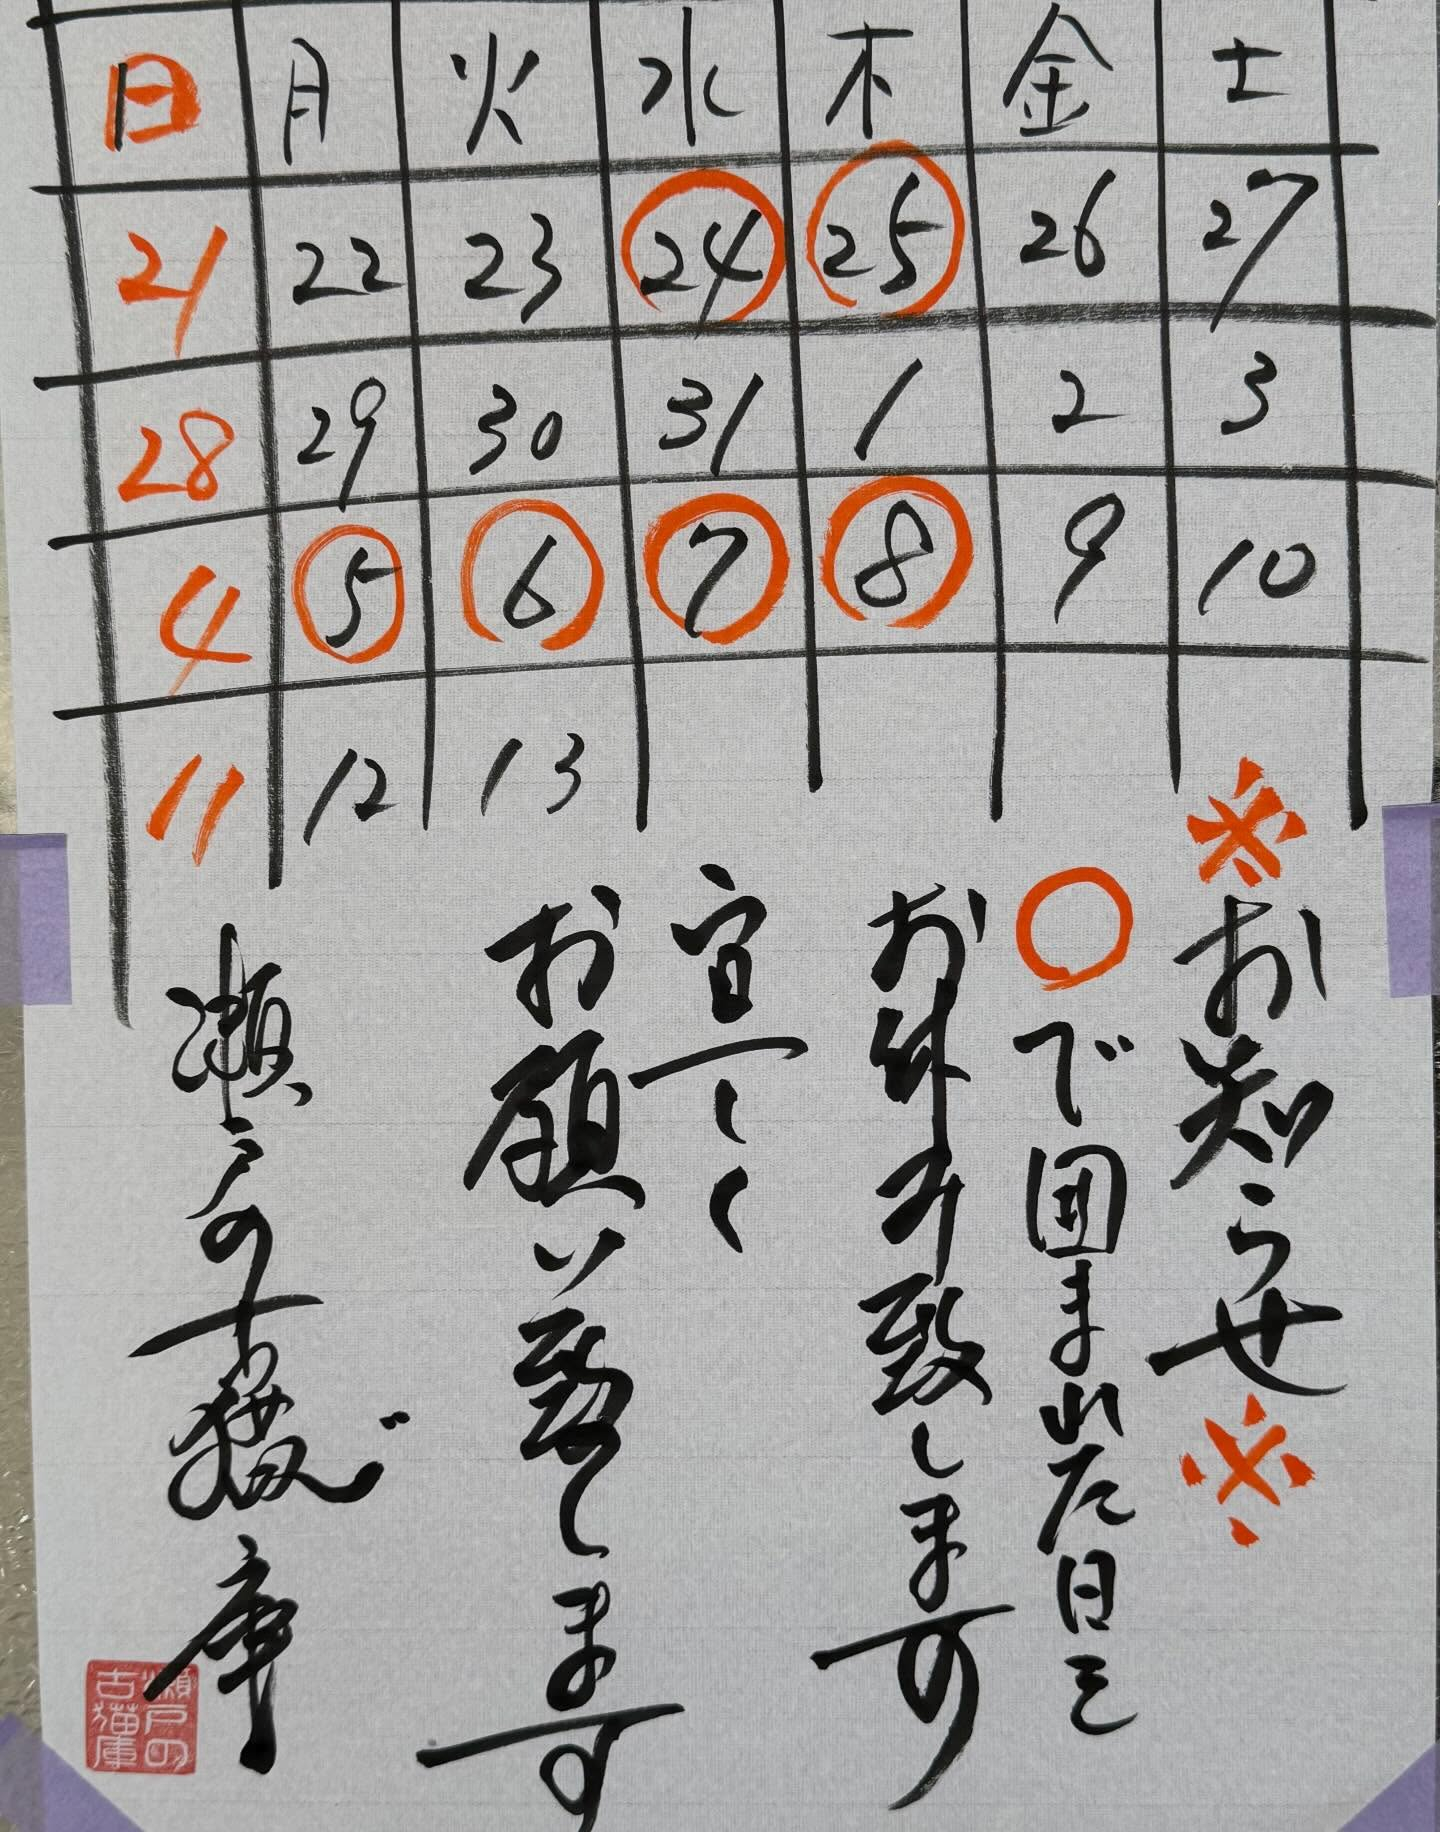 日 月 火 水 木 金 土
21 22 23 24 25 26 27
28 29 30 31 1 2 3
4 5 6 7 8 9 10
11 12 13
※お知らせ※
○で囲まれた日を
お休み致します
宜しく
お願い致します
瀬戸の古猫庫
瀬戸の
古猫庫